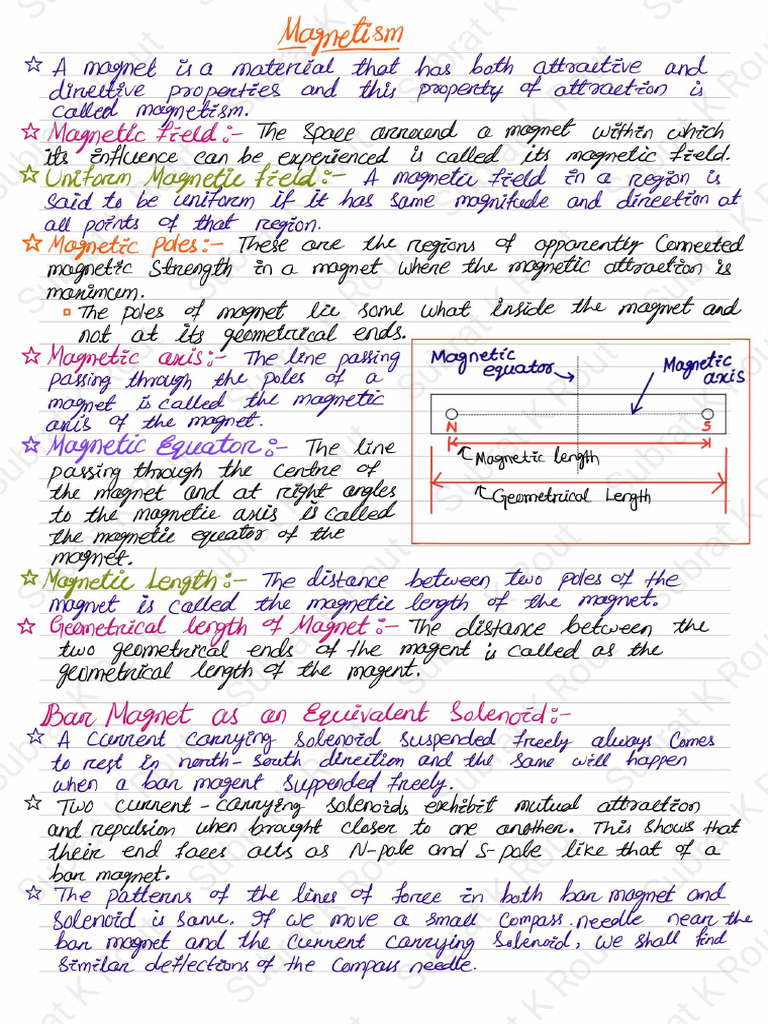 Magnetism
☆ A magnet is a material that has both attractive and
directive properties and this property of attraction is
called magnetism.
☆ Magnetic field:- The space arround a magnet within which
its influence can be experienced is called its magnetic field.
☆ Uniform Magnetic field:- A magnetic field in a region is
said to be uniform if it has same magnitude and direction at
all points of that region.
☆ Magnetic Poles:- These are the regions of apparently Connected
magnetic Strength in a magnet where the magnetic attraction is
maximum.
▫ The poles of magnet lie some what inside the magnet and
not at its geometrical ends.
☆ Magnetic axis:- The line passing
passing through the poles of a
magnet is called the magnetic
axis of the magnet.
☆ Magnetic Equator:- The line
passing through the centre of
the magnet and at right angles
to the magnetic axis is called
the magnetic equator of the
magnet.
Magnetic
equator
Magnetic
axis
N
S
Magnetic length
Geometrical Length
☆ Magnetic Length:- The distance between two poles of the
magnet is called the magnetic length of the magnet.
☆ Geometrical length of Magnet:- The distance between the
two geometrical ends of the magent is called as the
geometrical length of the magent.
Bar Magnet as an Equivalent Solenoid:-
☆ A Current carrying Solenoid suspended freely always Comes
to rest in north-south direction and the same will happen
when a bar magent suppended freely.
☆ Two current-carrying solenoids exhibit mutual attraction
and repulsion when brought closer to one another. This shows that
their end faces acts as N-pole and S-pole like that of a
bar magnet.
☆ The patterns of the lines of force in both bar magnet and
Solenoid is same. If we move a small Compass needle near the
bar magnet and the Current carrying Solenoid, we shall find
similar deflections of the Compass needle.
Subrat K Rout